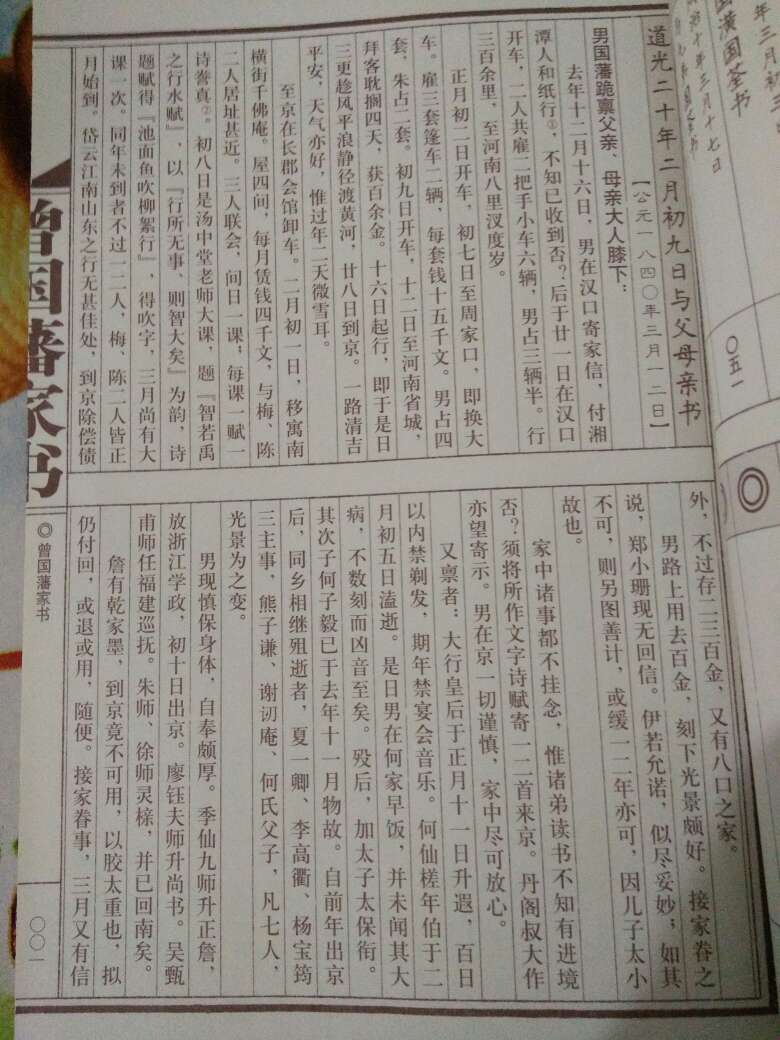 道光二十年二月初九日与父母亲书
【公元一八四〇年三月一二日】
男国藩跪禀父亲、母亲大人膝下：
去年十二月十六日，男在汉口寄家信，付湘
潭人和纸行①，不知已收到否？后于廿一日在汉口
开车，二人共雇二把手小车六辆，男占三辆半。行
三百余里，至河南八里汊度岁。
正月初二日开车，初七日至周家口，即换大
车。雇三套篷车二辆，每套钱十五千文。男占四
套，朱占二套。初九日开车，十二日至河南省城，
拜客耽搁四天，获百余金。十六日起行，即于是日
三更趁风平浪静径渡黄河，廿八日到京。一路清吉
平安，天气亦好，惟过年二天微雪耳。
至京在长郡会馆卸车。二月初一日，移寓南
横街千佛庵。屋四间，每月赁钱四千文，与梅、陈
二人居址甚近。三人联会，间日一课；每课一赋一
诗誊真②。初八日是汤中堂老师大课，题『智若禹
之行水赋』，以『行所无事，则智大矣』为韵，诗
题赋得『池面鱼吹柳絮行』，得吹字，三月尚有大
课一次。同年未到者不过一二人，梅、陈二人皆正
月始到。岱云江南山东之行无甚佳处，到京除偿债
外，不过存二三百金，又有八口之家。
男路上用去百金，刻下光景颇好。接家眷之
说，郑小珊现无回信。伊若允诺，似尽妥妙；如其
不可，则另图善计，或缓一二年亦可，因儿子太小
故也。
家中诸事都不挂念，惟诸弟读书不知有进境
否？须将所作文字诗赋寄一二首来京。丹阁叔大作
亦望寄示。男在京一切谨慎，家中尽可放心。
又禀者：大行皇后于正月十一日升遐，百日
以内禁剃发，期年禁宴会音乐。何仙槎年伯于二
月初五日溘逝。是日男在何家早饭，并未闻其大
病，不数刻而凶音至矣。殁后，加太子太保衔。
其次子何子毅已于去年十一月物故。自前年出京
后，同乡相继殂逝者，夏一卿、李高衢、杨宝筠
三主事，熊子谦、谢讱庵、何氏父子，凡七人，
光景为之变。
男现慎保身体，自奉颇厚。季仙九师升正詹，
放浙江学政，初十日出京。廖钰夫师升尚书。吴甄
甫师任福建巡抚。朱师、徐师灵榇，并已回南矣。
詹有乾家墨，到京竟不可用，以胶太重也，拟
仍付回，或退或用，随便。接家眷事，三月又有信
曾国藩家书
◎曾国藩家书
〇〇一
〇五一